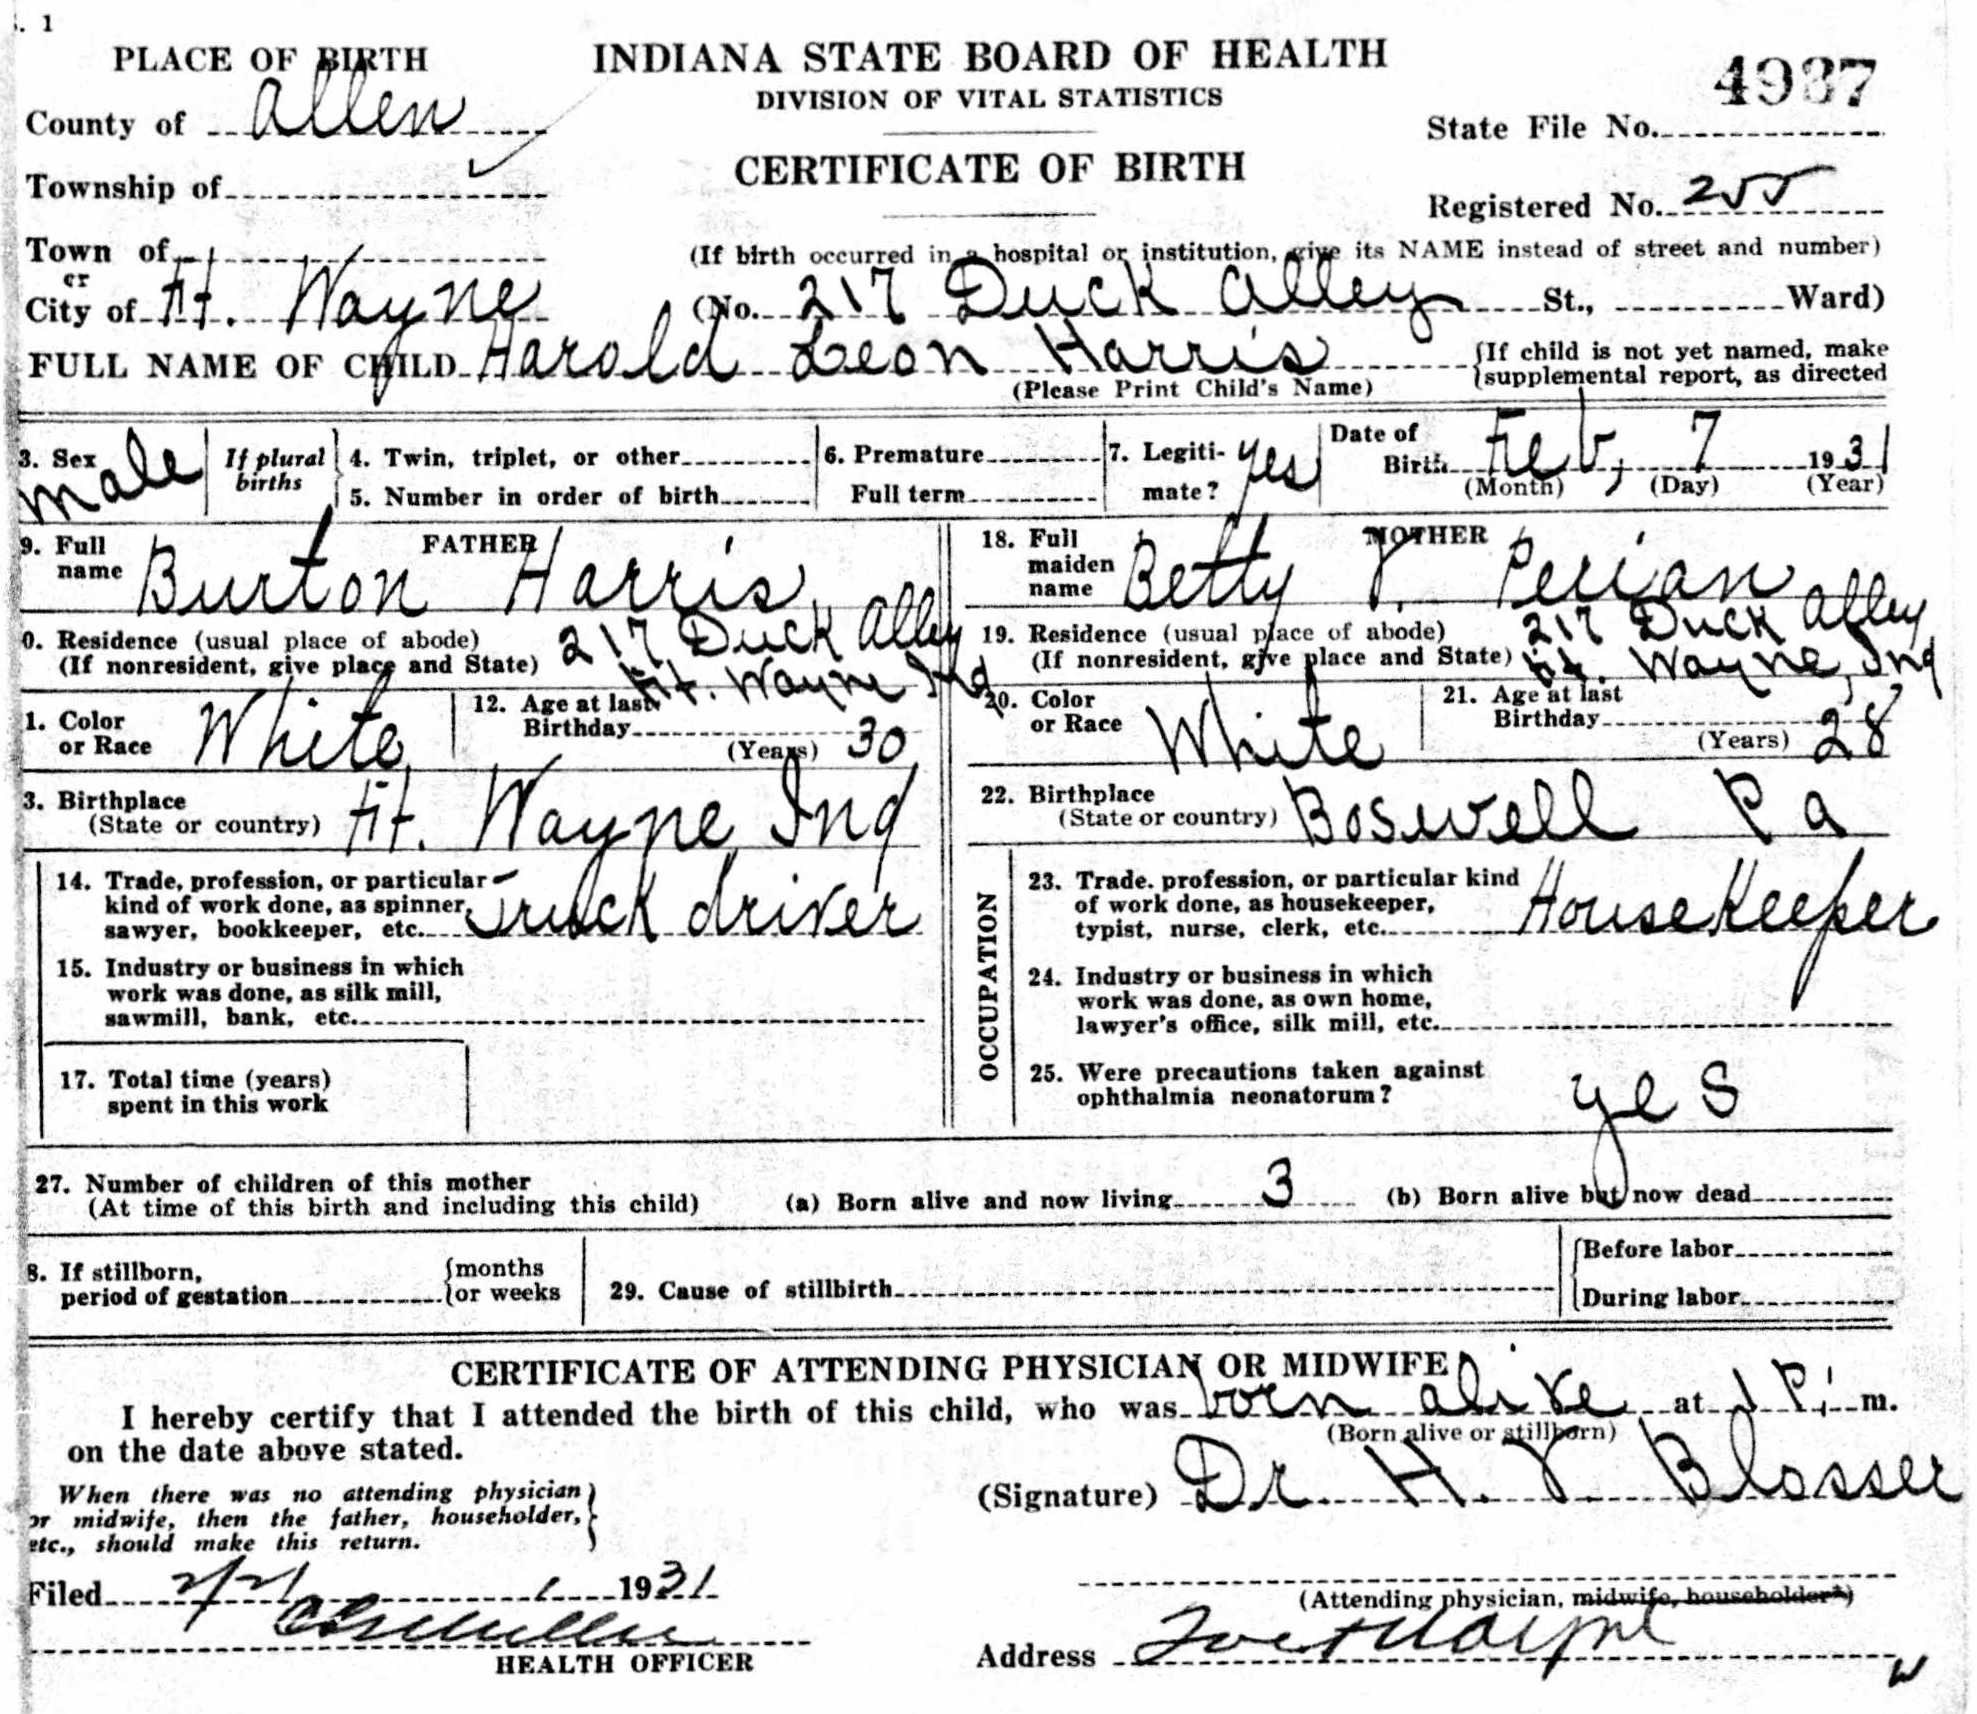 . 1
PLACE OF BIRTH
INDIANA STATE BOARD OF HEALTH
DIVISION OF VITAL STATISTICS
CERTIFICATE OF BIRTH
4987
State File No.
Registered No. 255
County of Allen
Township of
Town of
or
City of Ft. Wayne
(If birth occurred in a hospital or institution, give its NAME instead of street and number)
(No. 217 Duck Alley St., Ward)
FULL NAME OF CHILD Harold Leon Harris
(Please Print Child's Name)
{If child is not yet named, make
supplemental report, as directed
3. Sex male
If plural births
4. Twin, triplet, or other
5. Number in order of birth
6. Premature
Full term
7. Legiti-
mate? yes
Date of
Birth Feb, 7 1931
(Month) (Day) (Year)
FATHER
9. Full
name Burton Harris
0. Residence (usual place of abode)
(If nonresident, give place and State)
217 Duck Alley
Ft. Wayne Ind
1. Color
or Race White
12. Age at last
Birthday
(Years) 30
3. Birthplace
(State or country) Ft. Wayne Ind
14. Trade, profession, or particular
kind of work done, as spinner,
sawyer, bookkeeper, etc. Truck driver
15. Industry or business in which
work was done, as silk mill,
sawmill, bank, etc.
17. Total time (years)
spent in this work
MOTHER
18. Full
maiden
name Betty V. Perian
19. Residence (usual place of abode)
(If nonresident, give place and State)
217 Duck Alley
Ft. Wayne, Ind
20. Color
or Race White
21. Age at last
Birthday
(Years) 28
22. Birthplace
(State or country) Boswell Pa
OCCUPATION
23. Trade. profession, or particular kind
of work done, as housekeeper,
typist, nurse, clerk, etc. HouseKeeper
24. Industry or business in which
work was done, as own home,
lawyer's office, silk mill, etc.
25. Were precautions taken against
ophthalmia neonatorum? yes
27. Number of children of this mother
(At time of this birth and including this child)
(a) Born alive and now living 3
(b) Born alive but now dead
8. If stillborn,
period of gestation
{months
or weeks
29. Cause of stillbirth
{Before labor
During labor
CERTIFICATE OF ATTENDING PHYSICIAN OR MIDWIFE
I hereby certify that I attended the birth of this child, who was born alive at 1 P. m.
(Born alive or stillborn)
on the date above stated.
When there was no attending physician
or midwife, then the father, householder,
etc., should make this return.
(Signature) Dr H. V Blosser
Filed 2/21 1931
HEALTH OFFICER
(Attending physician, midwife, householder*)
Address Fort Wayne
W